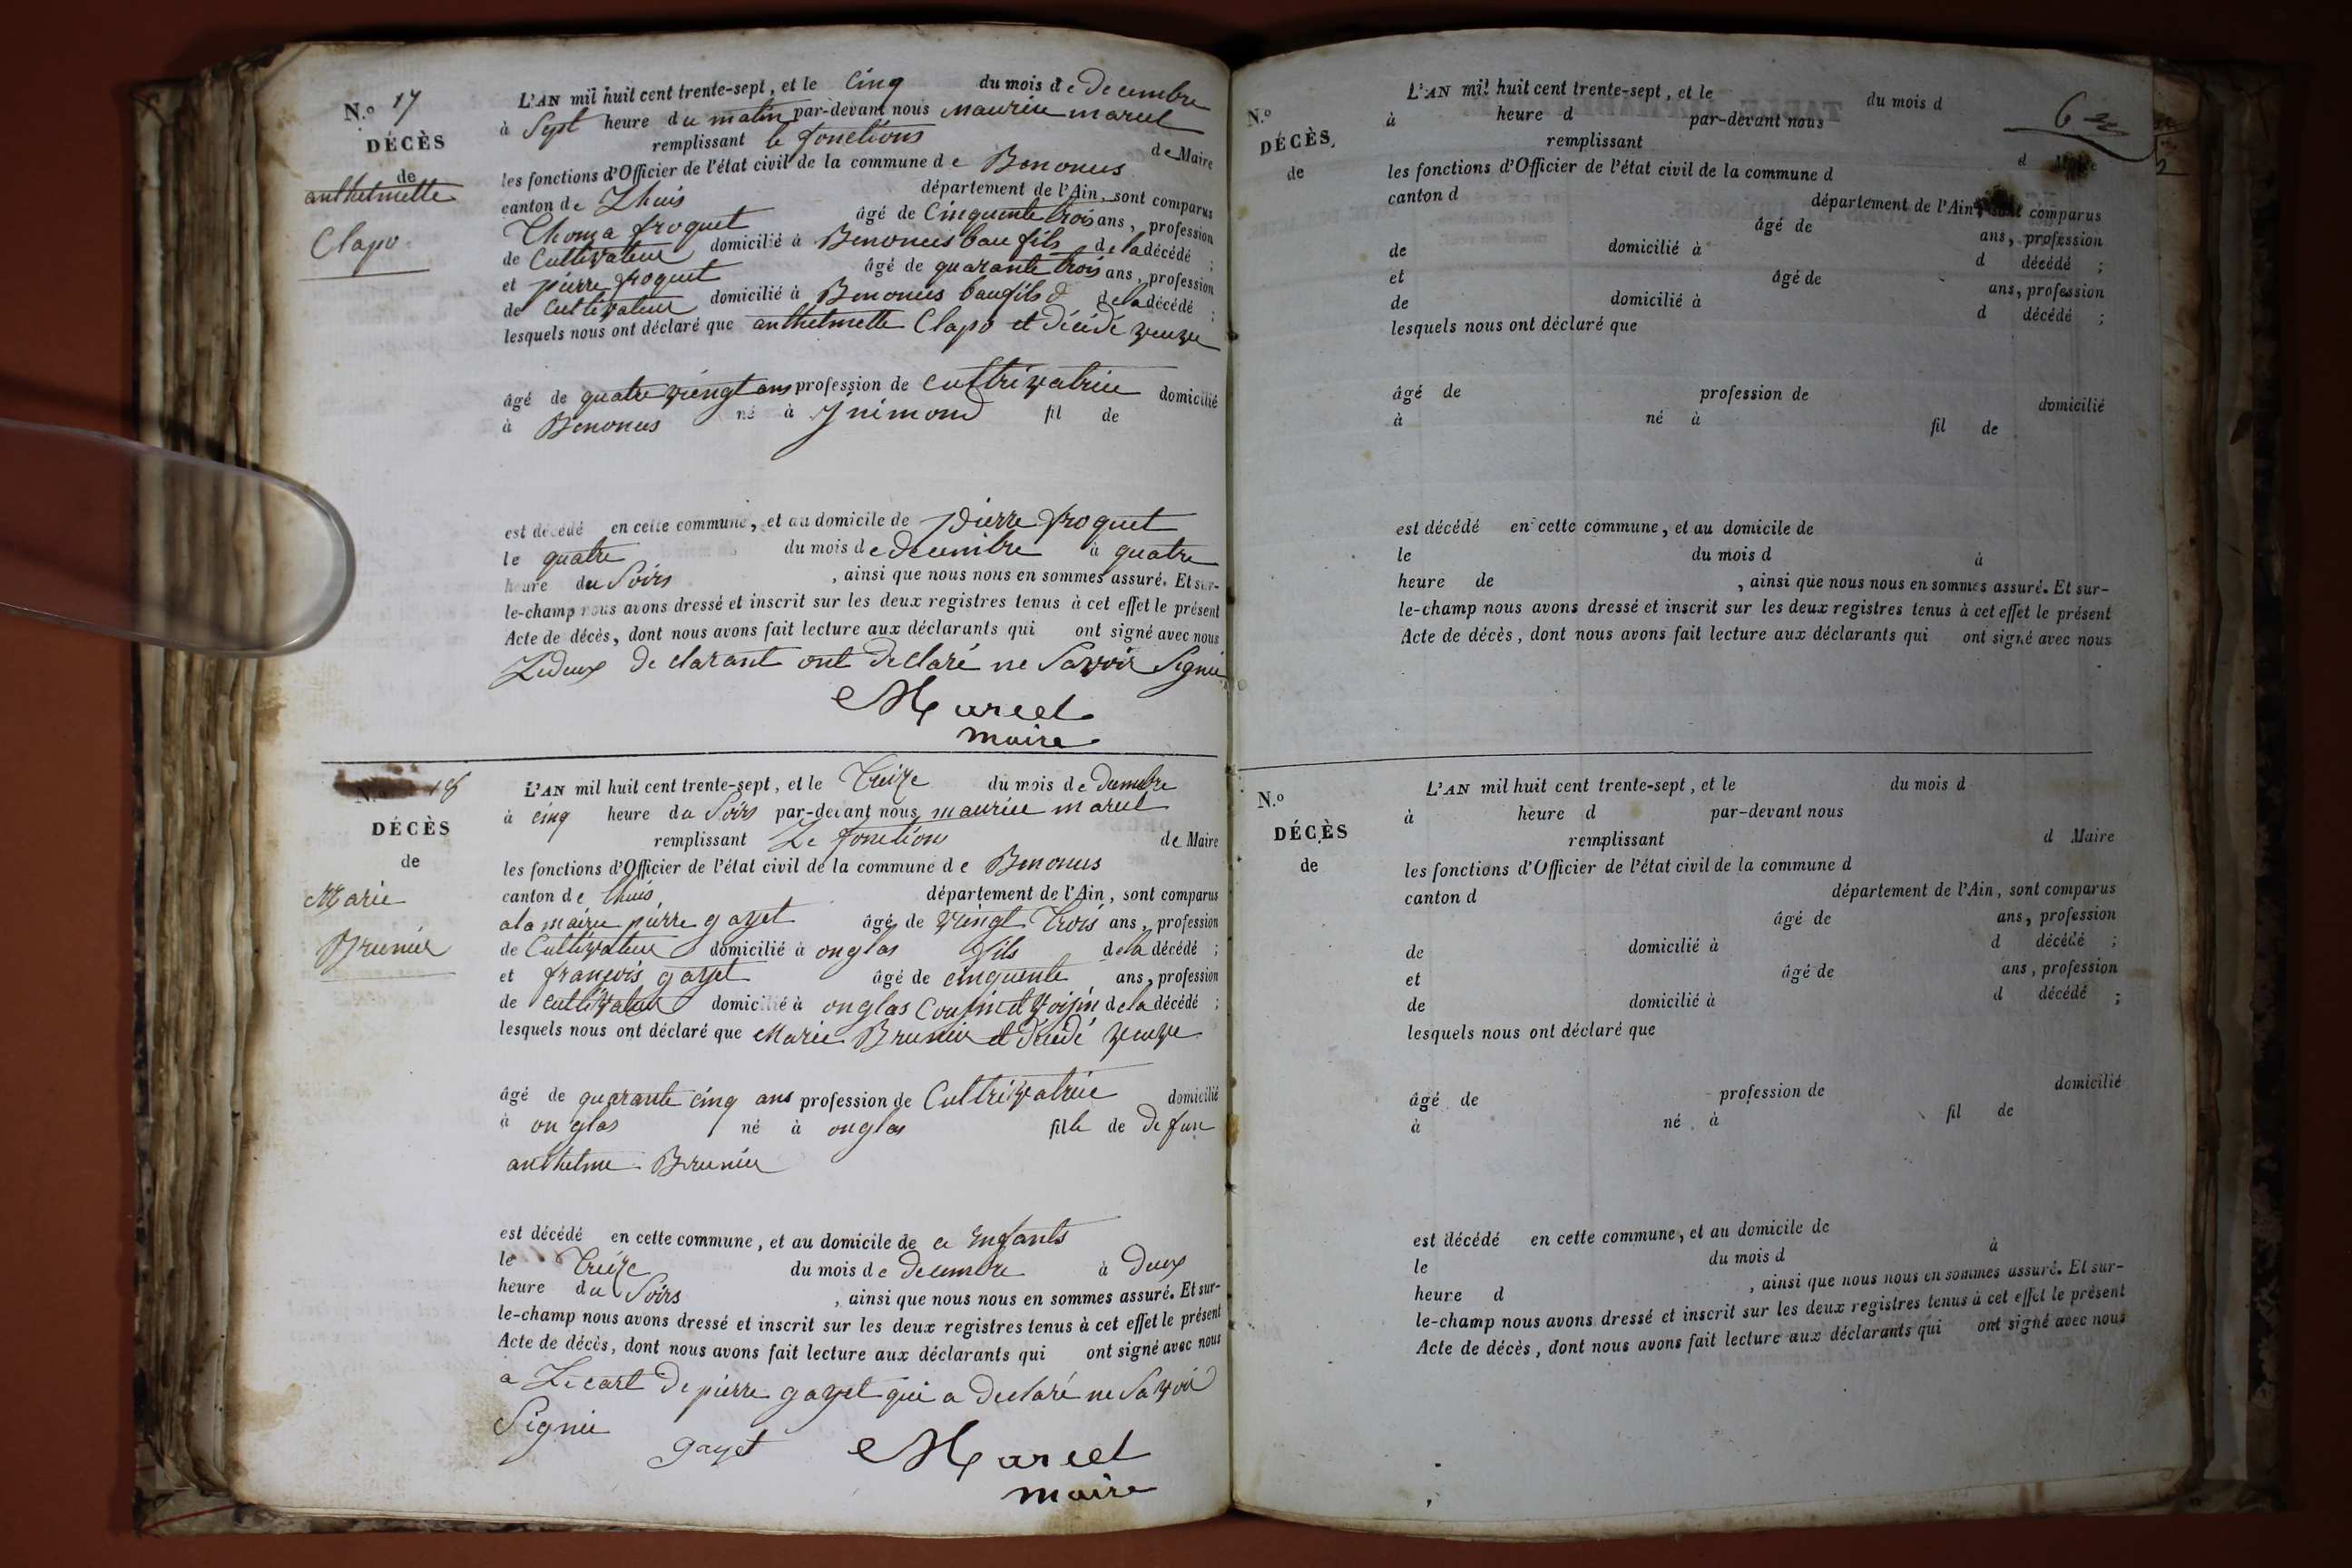 N.o 17
DÉCÈS
de
anthelmette
Clapo
L'AN mil huit cent trente-sept, et le Cinq du mois de decembre
à Sept heure du matin par-devant nous maurice marcel
remplissant le fonctions de Maire
les fonctions d'Officier de l'état civil de la commune de Benonces
canton de Lhuis département de l'Ain, sont comparus
Thoma froquet âgé de Cinquente trois ans, profession
de Cultivateur domicilié à Benonces baufils de la décédé ;
et pierre froquet âgé de quarante trois ans, profession
de Cultivateur domicilié à Benonces baufils d de la décédé ;
lesquels nous ont déclaré que anthelmette Clapo et décédé veuve
âgé de quatre viengt ans profession de Cultrivatrice domicilié
à Benonces né à Jnimond fil de
est décédé en cette commune, et au domicile de pierre froquet
le quatre du mois de decembre à quatre
heure du Soirs , ainsi que nous nous en sommes assuré. Et sur-
le-champ nous avons dressé et inscrit sur les deux registres tenus à cet effet le présent
Acte de décès, dont nous avons fait lecture aux déclarants qui ont signé avec nous
Ledeux de clarant ont declaré ne Savoir Signie
Marcel
maire
N.o 18
DÉCÈS
de
Marie
Brunier
L'AN mil huit cent trente-sept, et le Treize du mois de decembre
à cinq heure du Soirs par-devant nous maurice marcel
remplissant Le fonctions de Maire
les fonctions d'Officier de l'état civil de la commune de Benonces
canton de lhuis département de l'Ain, sont comparus
ala maire pierre gayet âgé de vingt Trois ans, profession
de Cultivateur domicilié à onglas fils de la décédé ;
et françois gayet âgé de cinquente ans, profession
de cultivateur domicilié à onglas Cousin et voisin de la décédé ;
lesquels nous ont déclaré que Marie Brunier et décédé veuve
âgé de quarante cinq ans profession de Cultrivatrice domicilié
à onglas né à onglas fille de defun
anthelme Brunier
est décédé en cette commune, et au domicile de ce Enfants
le Treize du mois de decembre à Deux
heure du Soirs , ainsi que nous nous en sommes assuré. Et sur-
le-champ nous avons dressé et inscrit sur les deux registres tenus à cet effet le présent
Acte de décès, dont nous avons fait lecture aux déclarants qui ont signé avec nous
a Lecart de pierre gayet qui a declaré ne Savoir
Signie
gayet Marcel
maire
6
N.o
DÉCÈS,
de
L'AN mil huit cent trente-sept, et le du mois d
à heure d par-devant nous
remplissant d Maire
les fonctions d'Officier de l'état civil de la commune d
canton d département de l'Ain, sont comparus
âgé de ans, profession
de domicilié à d décédé ;
et âgé de ans, profession
de domicilié à d décédé ;
lesquels nous ont déclaré que
âgé de profession de domicilié
à né à fil de
est décédé en cette commune, et au domicile de
le du mois d à
heure de , ainsi que nous nous en sommes assuré. Et sur-
le-champ nous avons dressé et inscrit sur les deux registres tenus à cet effet le présent
Acte de décès, dont nous avons fait lecture aux déclarants qui ont signé avec nous
N.o
DÉCÈS
de
L'AN mil huit cent trente-sept, et le du mois d
à heure d par-devant nous
remplissant d Maire
les fonctions d'Officier de l'état civil de la commune d
canton d département de l'Ain, sont comparus
âgé de ans, profession
de domicilié à d décédé ;
et âgé de ans, profession
de domicilié à d décédé ;
lesquels nous ont déclaré que
âgé de profession de domicilié
à né à fil de
est décédé en cette commune, et au domicile de
le du mois d à
heure d , ainsi que nous nous en sommes assuré. Et sur-
le-champ nous avons dressé et inscrit sur les deux registres tenus à cet effet le présent
Acte de décès, dont nous avons fait lecture aux déclarants qui ont signé avec nous